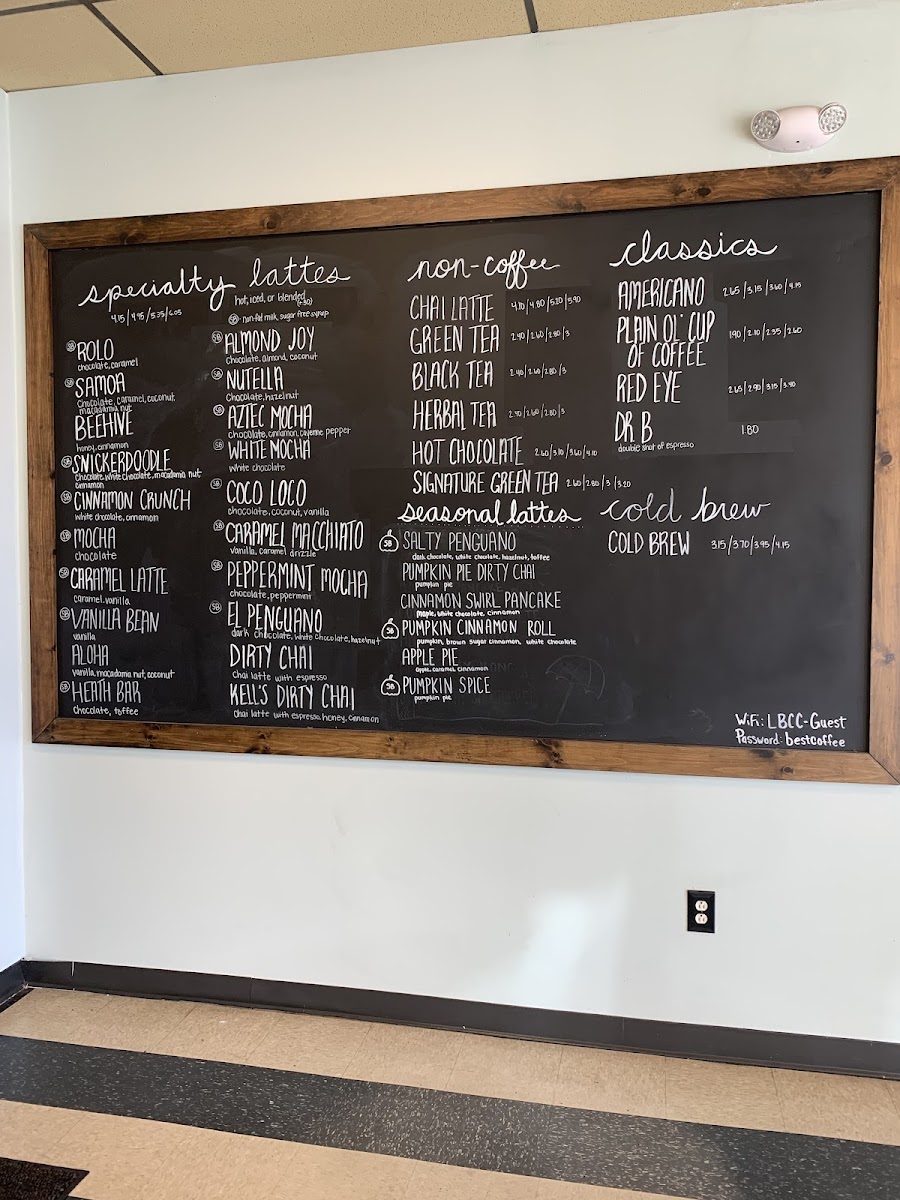 specialty lattes
hot, iced, or blended (+.30)
4.15 / 4.95 / 5.35 / 6.05
SB - nonfat milk, sugar free syrup
SB ROLO
chocolate, caramel
SB SAMOA
chocolate, caramel, coconut,
macadamia nut
BEEHIVE
honey, cinnamon
SB SNICKERDOODLE
chocolate, white chocolate, macadamia nut
cinnamon
SB CINNAMON CRUNCH
white chocolate, cinnamon
SB MOCHA
chocolate
SB CARAMEL LATTE
caramel, vanilla
SB VANILLA BEAN
vanilla
ALOHA
vanilla, macadamia nut, coconut
SB HEATH BAR
chocolate, toffee
SB ALMOND JOY
chocolate, almond, coconut
SB NUTELLA
chocolate, hazelnut
SB AZTEC MOCHA
chocolate, cinnamon, cayenne pepper
SB WHITE MOCHA
white chocolate
SB COCO LOCO
chocolate, coconut, vanilla
SB CARAMEL MACCHIATO
vanilla, caramel drizzle
SB PEPPERMINT MOCHA
chocolate, peppermint
SB EL PENGUANO
dark chocolate, white chocolate, hazelnut
DIRTY CHAI
chai latte with espresso
KELL'S DIRTY CHAI
chai latte with espresso, honey, cinnamon
non-coffee
CHAI LATTE 4.10 / 4.80 / 5.20 / 5.90
GREEN TEA 2.40 / 2.60 / 2.80 / 3
BLACK TEA 2.40 / 2.60 / 2.80 / 3
HERBAL TEA 2.40 / 2.60 / 2.80 / 3
HOT CHOCOLATE 2.60 / 3.10 / 3.60 / 4.10
SIGNATURE GREEN TEA 2.60 / 2.80 / 3 / 3.20
seasonal lattes
SB SALTY PENGUANO
dark chocolate, white chocolate, hazelnut, toffee
PUMPKIN PIE DIRTY CHAI
pumpkin pie
CINNAMON SWIRL PANCAKE
maple, white chocolate, cinnamon
SB PUMPKIN CINNAMON ROLL
pumpkin, brown sugar cinnamon, white chocolate
APPLE PIE
apple, caramel, cinnamon
SB PUMPKIN SPICE
pumpkin pie
classics
AMERICANO 2.65 / 3.15 / 3.60 / 4.15
PLAIN OL' CUP
OF COFFEE 1.90 / 2.10 / 2.35 / 2.60
RED EYE 2.65 / 2.90 / 3.15 / 3.40
DR. B 1.80
double shot of espresso
cold brew
COLD BREW 3.15 / 3.70 / 3.95 / 4.15
WiFi: LBCC-Guest
Password: bestcoffee